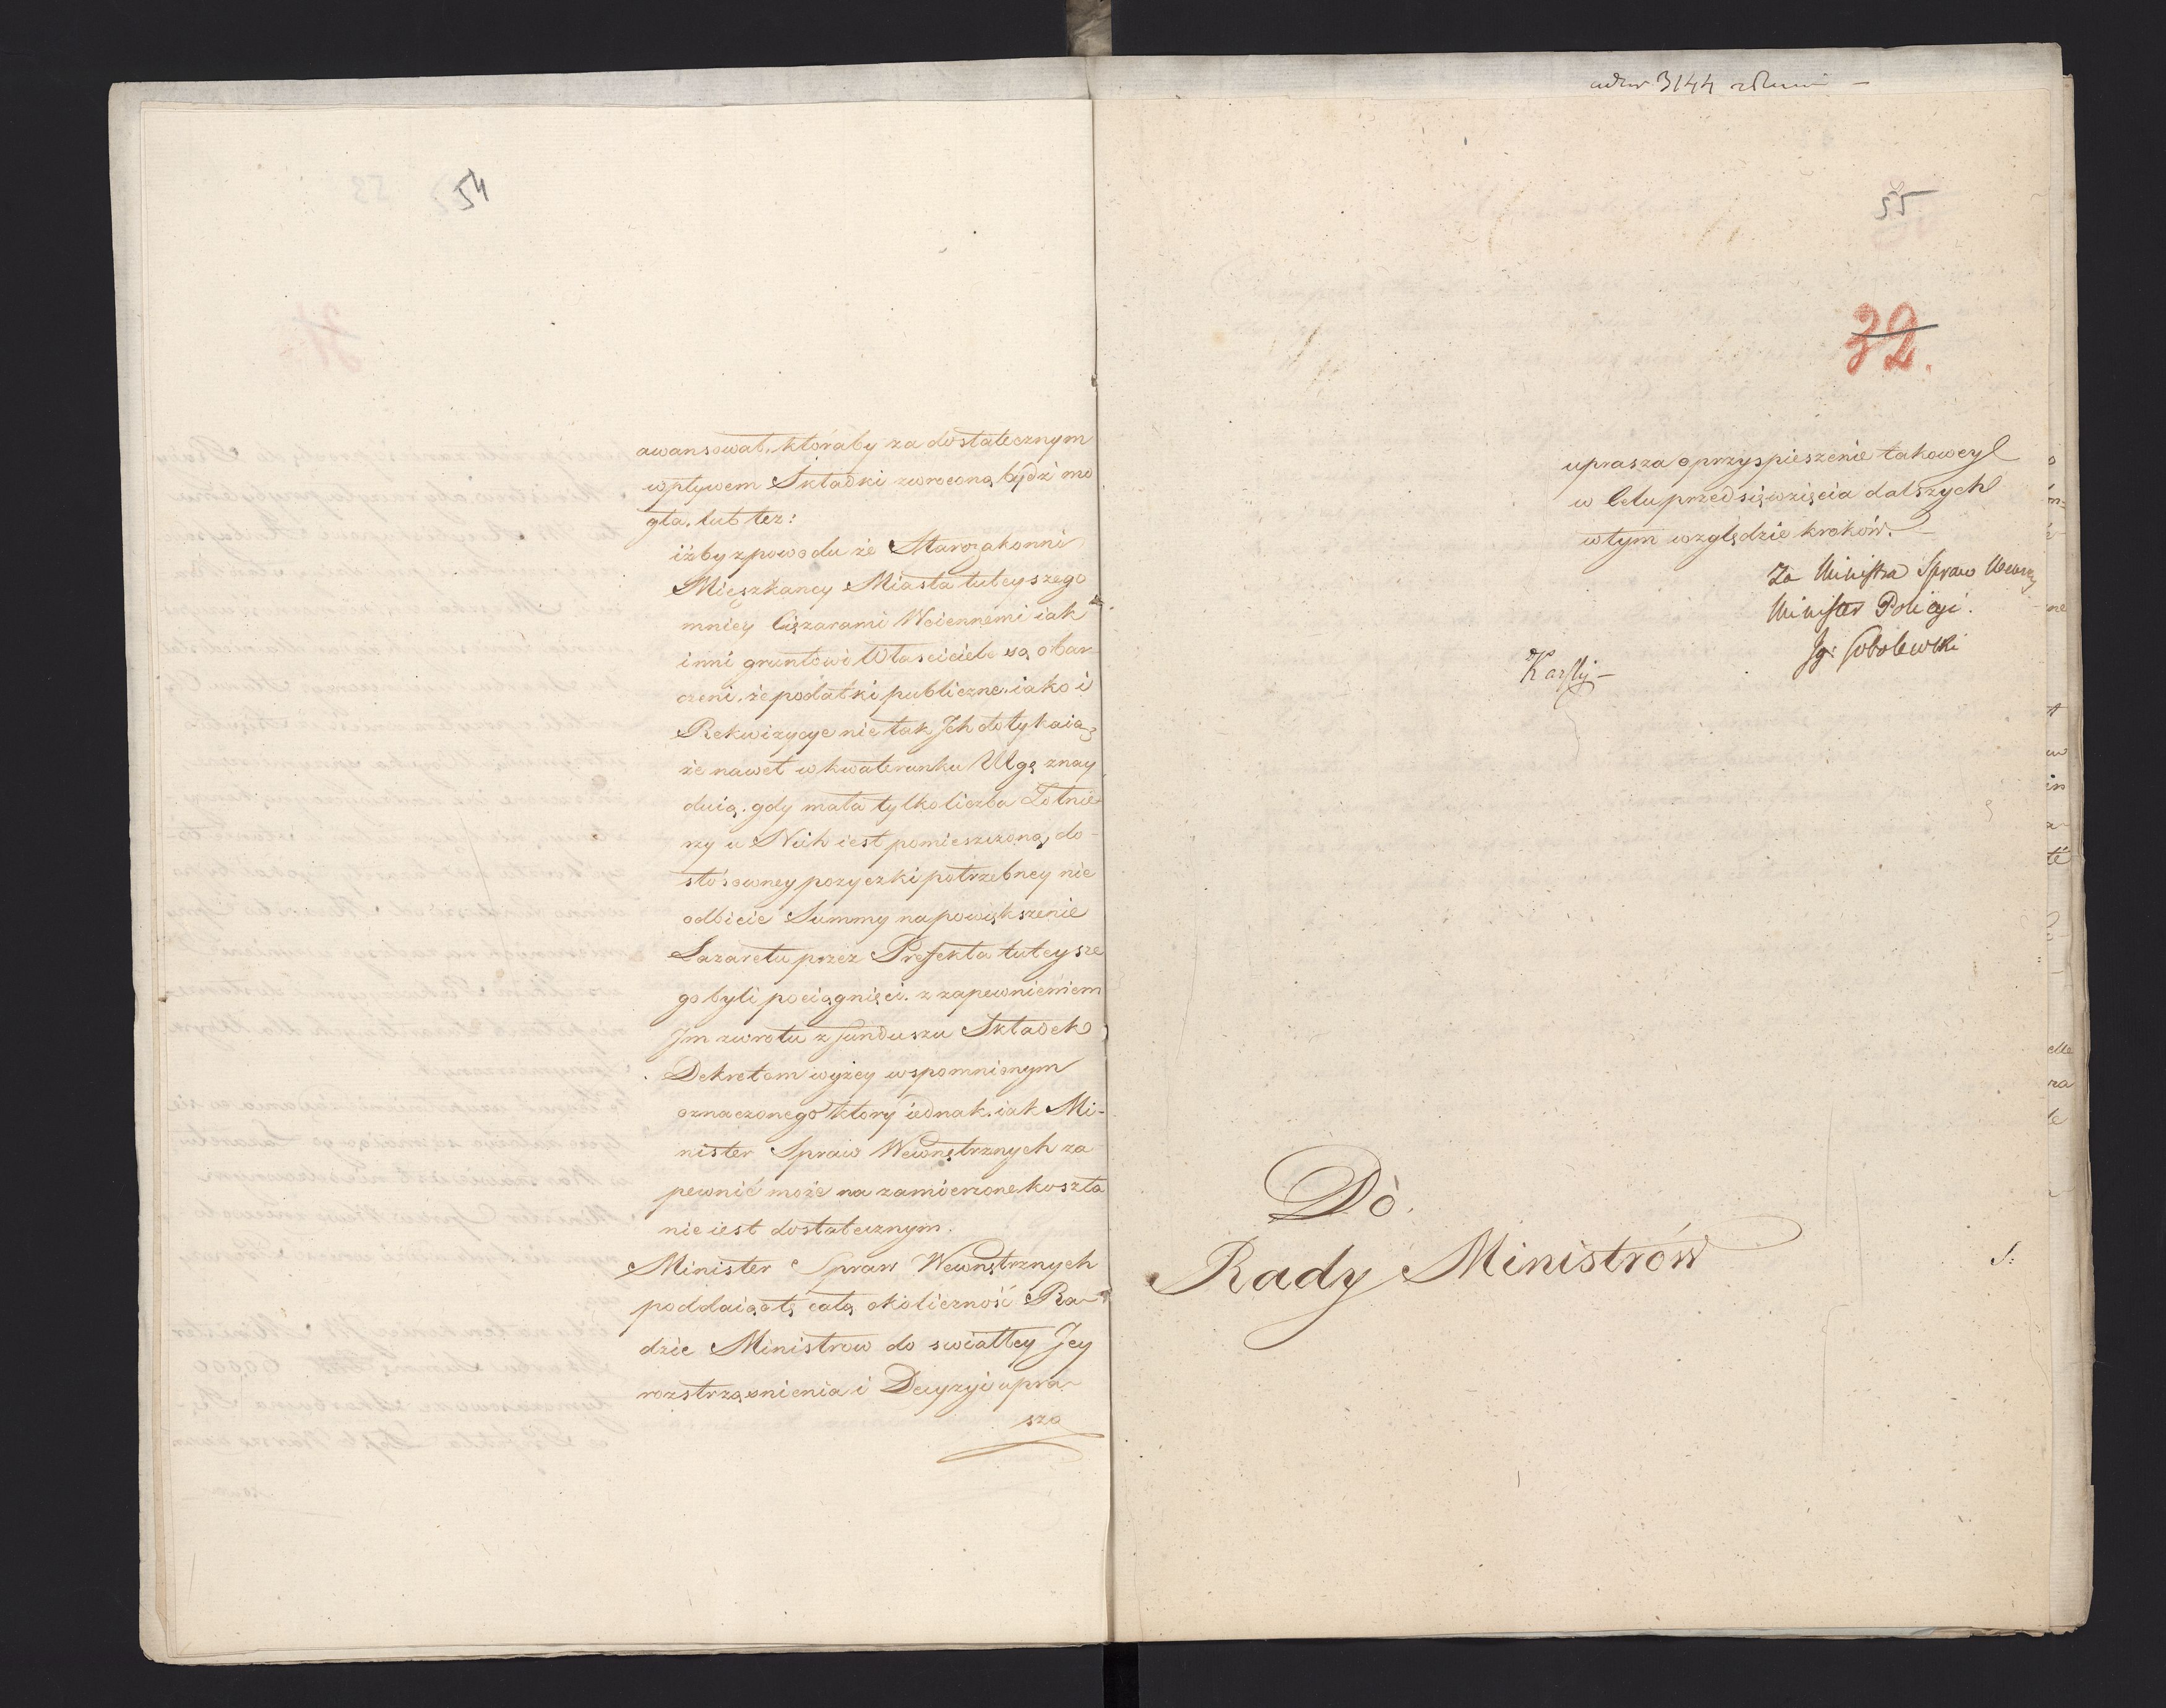 54
awansował, któraby za dostatecznym
wpływem Składki zwrocona bydź mo
gła, lub też:
iżby z powodu że Starozakonni
Mieszkancy Miasta tuteyszego
mniey Ciężarami Woiennemi iak
inni gruntowi Własciciele są obar
czeni, że podatki publiczne, iako i
Rekwizycye nie tak Jch dotykaią
że nawet w kwaterunku Ulgę znay
duią, gdy mała tylko liczba Żołnie
rzy u Nich iest pomieszczoną, do
stosowney pozyczki potrzebney nie
odbicie Summy na powiększenie
Lazaretu przez Prefekta tuteysze
go byli pociągnięci, z zapewnieniem
Jm zwrotu z funduszu Składek
Dekretem wyżey wspomnionym
oznaczonego który iednak, iak Mi-
nister Spraw Wewnętrznych za
pewnić może na zamierzone koszta
nie iest dostatecznym.
Minister Spraw Wewnętrznych
poddaiąc tę całą okoliczność Ra-
dzie Ministrow do swiatłey Jey
rozstrząsnienia i Decyzyi upra-
sza
3144
55
32.
uprasza o przyspieszenie takowey
w Celu przedsięwzięcia dalszych
w tym względzie kroków.
Za Ministra Spraw Wewnę
Minister Policyi.
Jg: Sobolewski
Do
Rady Ministrów